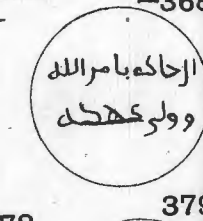 368
الحاكم بامر الله
وولى عهده
379
78